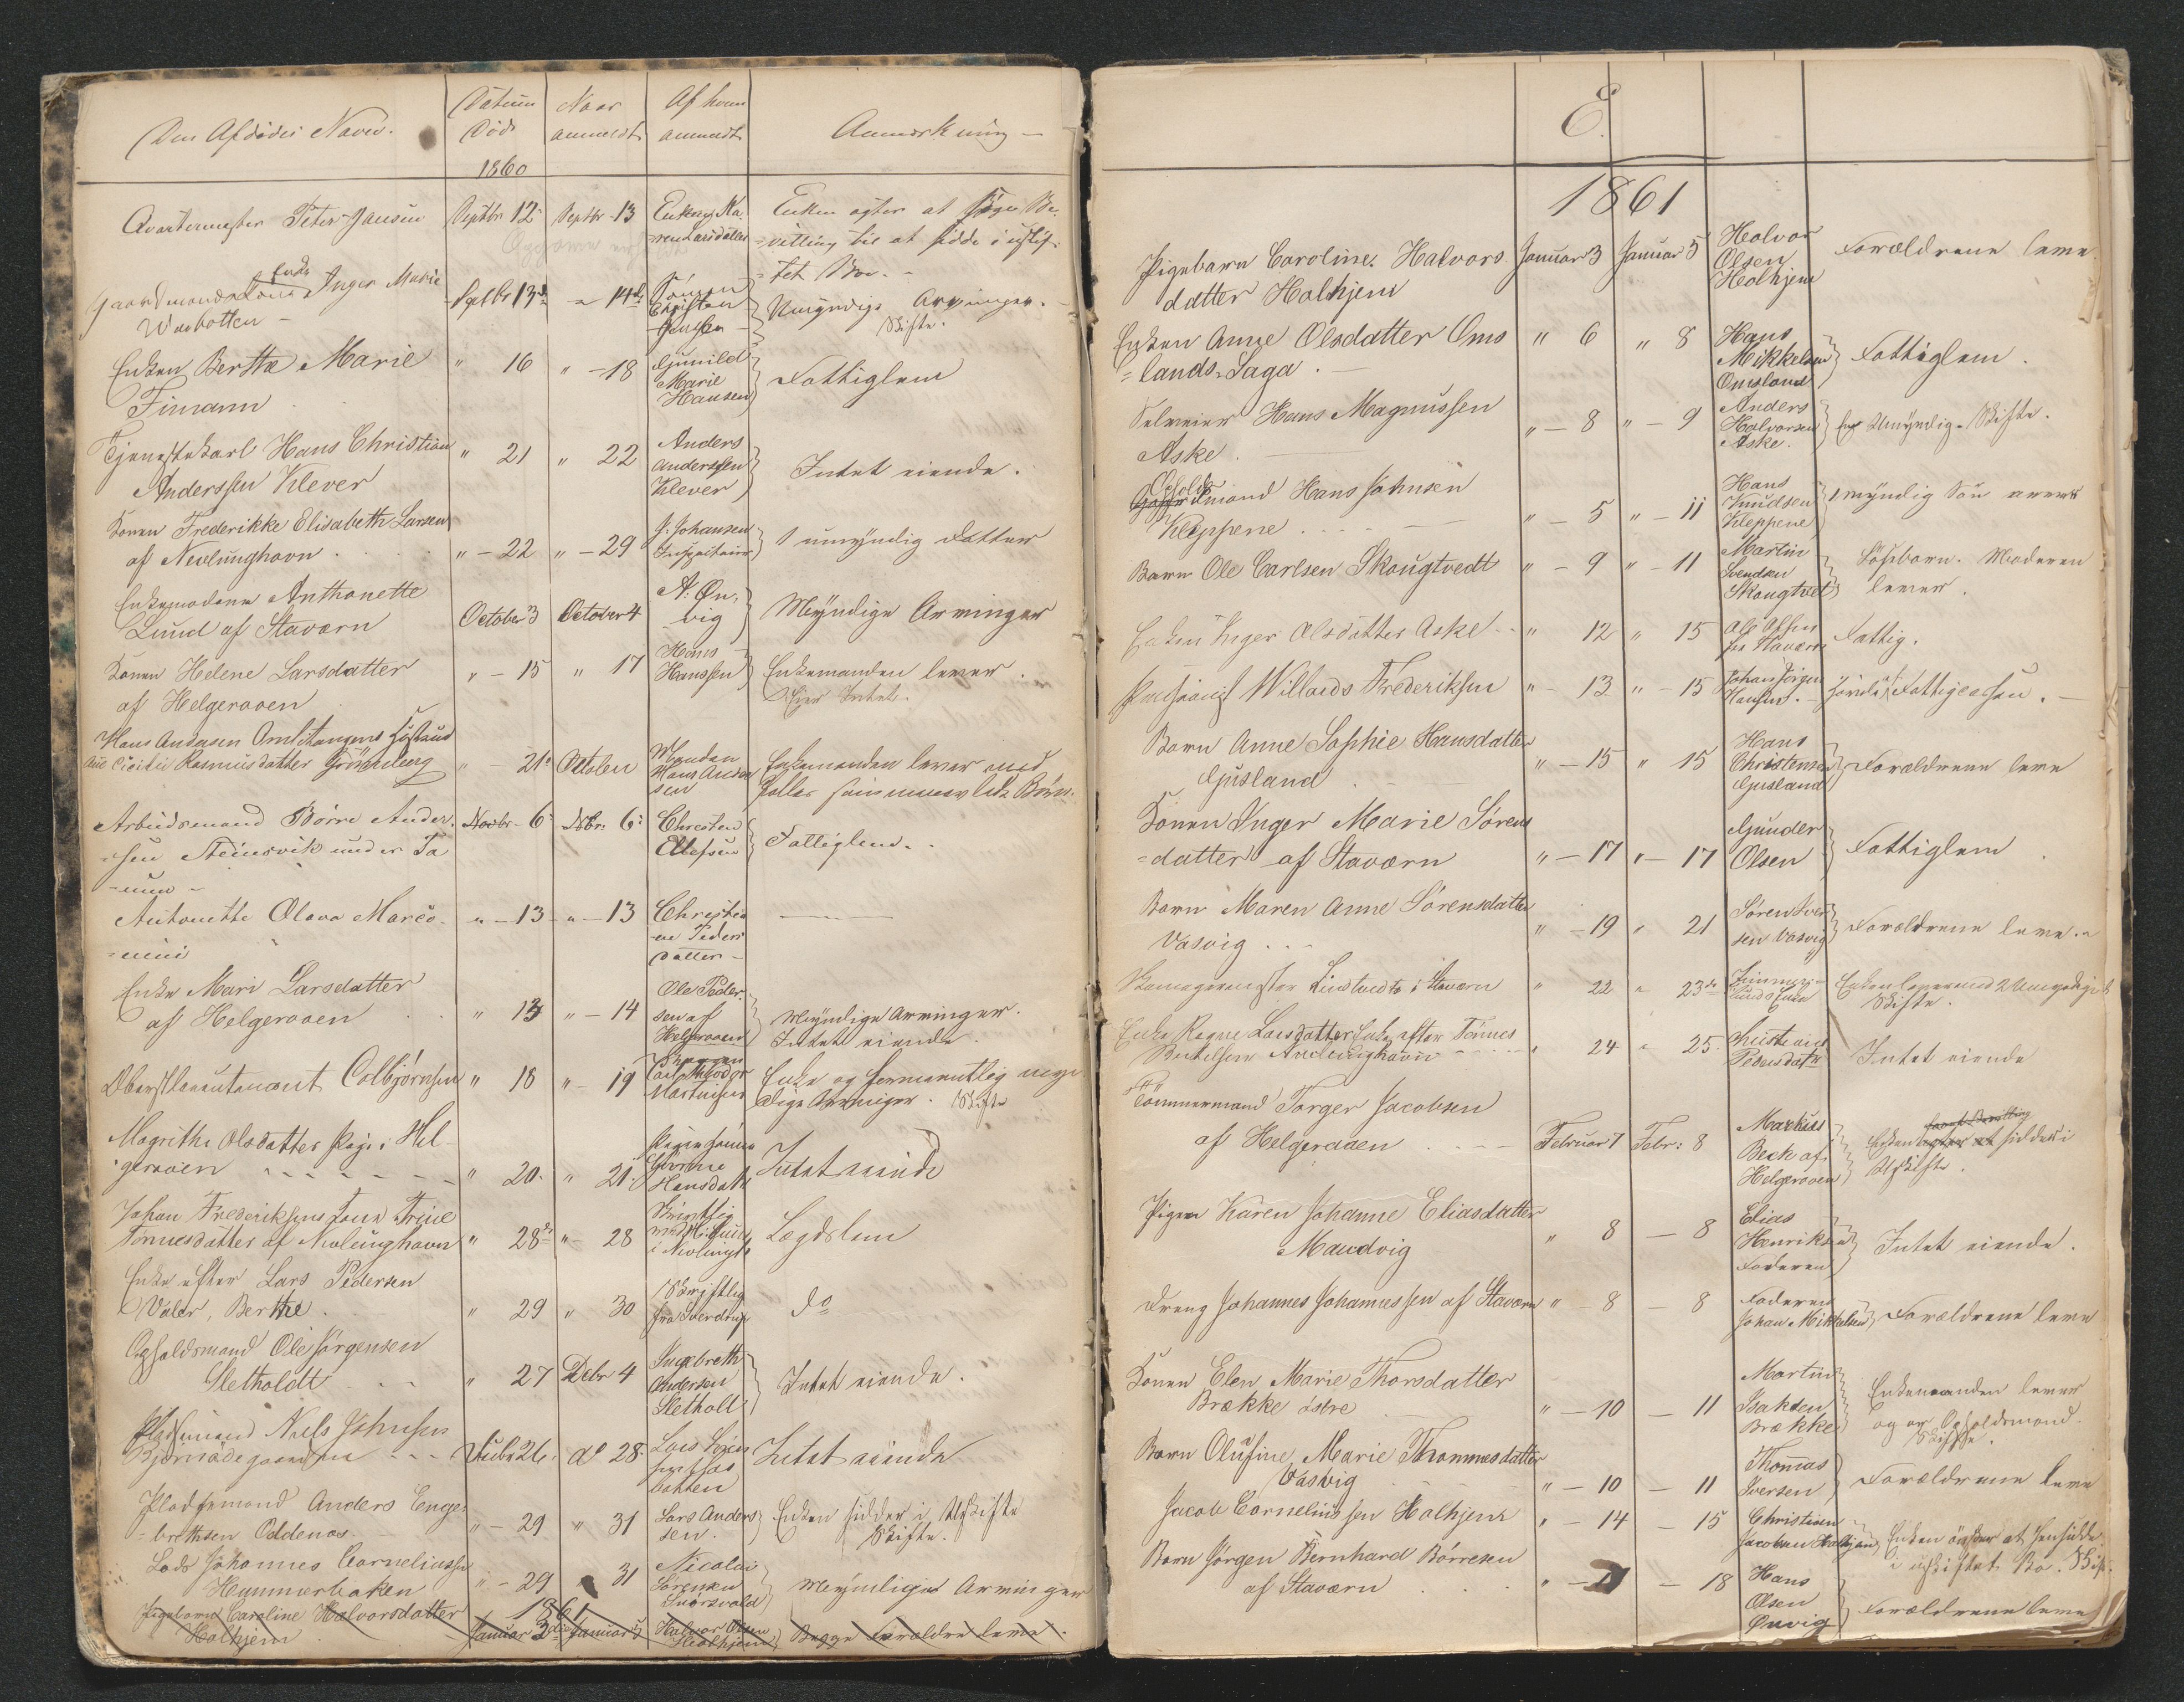 Den Afdødes Navn.
Datum Død
Naar anmeldt
Af hvem anmeldt
Anmærkning
1860
Qvartermester Peter Jansen Septbr 12 Septbr 13 Enken Maren Larsdatter Enken agter at søge Bevilling til at sidde i uskiftet Boe.
Gaardmands Enke Inger Marie Septbr 13 " 14 Sønnen Christen Umyndige Arvinger. Skifte.
Enken Berthe Marie " 16 " 18 Gunild Marie Hansen Fattiglem
Fimann
Tjenestekarl Hans Christian " 21 " 22 Anders Anderssen Klever Intet eiende.
Anderssen Klever
Konen Frederikke Elisabeth Larsen
af Nevlunghavn " 22 " 29 J. Johansen 1 umyndig Datter
Enkemadame Anthonette
Lund af Staværn October 3 October 4 A. Ønvig Myndige Arvinger
Konen Helene Larsdatter " 15 " 17 Hans Hanssen Enkemanden lever.
af Helgeroaen Eier Intet.
Hans Andersen Omlitangens Hustrue
Cicilie Rasmusdatter " 21 October Manden Hans Andersen Enkemanden lever med
fælles Børn.
Arbeidsmand Børre Ander- Novbr 6 Nvbr: 6 Christen Ellefsen Fattiglem.
sen Steinsvik under Ta
num
Antonette Olava Marco- " 13 " 13 Christine Pedersdatter
nini
Enke Mari Larsdatter
af Helgeroaen " 13 " 14 Ole Pedersen af Helgeroaen Myndige Arvinger. Intet eiende.
Oberstlieutenant Colbjørnsen " 18 " 19 Carl Theodor Martinsen Enke og formentlig myndige Arvinger. Skifte
Magrethe Olsdatter Pige i Hel-
geroaen " 20 " 21 Hansdatter Intet eiende
Johan Frederiksens Kone Trine
Tønnesdatter af Nevlunghavn " 28 " 28 Lægdslem
Enke efter Lars Pedersen
Valer, Berthe " 29 " 30 Skriftlig fra Sverdrup do
Opholdsmand Ole Jørgensen
Sletholdt " 27 Debr 4 Ingebreth Andersen Sletholt Intet eiende.
Pladsmand Niels Johnsen
26 28 Lars Intet eiende
Pladsemand Anders Enge-
brethsen Oddenæs. " 29 " 31 Lars Andersen. Enken sidder i Uskifte Skifte.
Lods Johannes Corneliussen
Hummerbaken " 29 31 Nicolai Sørensen Myndige Arvinger
Pigebarn Caroline Halvorsdatter
Holhjem 1861 Januar 3 Januar 5 Halvor Olsen Holhjem Begge Forældre leve.
E.
1861
Pigebarn Caroline Halvors Januar 3 Januar 5 Halvor Olsen Holhjem Forældrene leve
datter Holhjem
Enken Anne Olsdatter Oms " 6 " 8 Hans Mikkelsen Omsland Fattiglem.
lands-Saga.
Selveier Hans Magnussen
Aske " 8 " 9 Anders Halvorsen Aske. Umyndig. Skifte.
Opholdsmand Hans Johnsen
Kleppene " 5 " 11 Hans Knudsen Kleppene 1 myndig Søn
Barn Ole Carlsen Skougtvedt " 9 " 11 Martin Svendsen Skougtvedt Løsbarn. Moderen lever.
Enken Inger Olsdatter Aske " 12 " 15 Ole Olsen Fattig.
Willards Frederiksen " 13 " 15 Johan Jørgen Hansen. Fattigcassen.
Barn Anne Sophie Hansdatter
Gusland " 15 " 15 Hans Christensen Gusland Forældrene leve
Konen Inger Marie Sørens
datter af Staværn " 17 " 17 Gunder Olsen Fattiglem
Barn Maren Anne Sørensdatter
Vasvig " 19 " 21 Søren Iversen Vasvig Forældrene leve.
Skomagermester Lindtvedt i Staværn " 22 " 23 Enken lever med 2 Umyndige Skifte.
Enke Ragne Larsdatter Enke efter Tønnes
" 24 " 25 Christiane Pedersdatter Intet eiende
Tømmermand Torger Jacobsen
af Helgeraaen Februar 7 Febr: 8 Markus Beck af Helgeroaen Enken sidder i Uskifte.
Pigen Karen Johanne Eliasdatter
Mandvig " 8 8 Elias Henriksen Faderen Intet eiende.
Dreng Johannes Johannessen af Staværn " 8 8 Faderen Johan Mikkelsen Forældrene leve
Konen Elen Marie Thorsdatter
Brække østre " 10 11 Martin Isaksen Brække Enkemanden lever og er Opholdsmand. Skifte.
Barn Olufine Marie Thommesdatter
Vasvig " 10 11 Thomas Iversen Forældrene leve
Jacob Corneliussen Holhjem " 14 15 Christian Jacobsen Holhjem Enken ønsker at hensidde i uskiftet Bo. Skif.
Barn Jørgen Bernhard Børresen
af Staværn 18 Hans Olsen Ønvig Forældrene leve